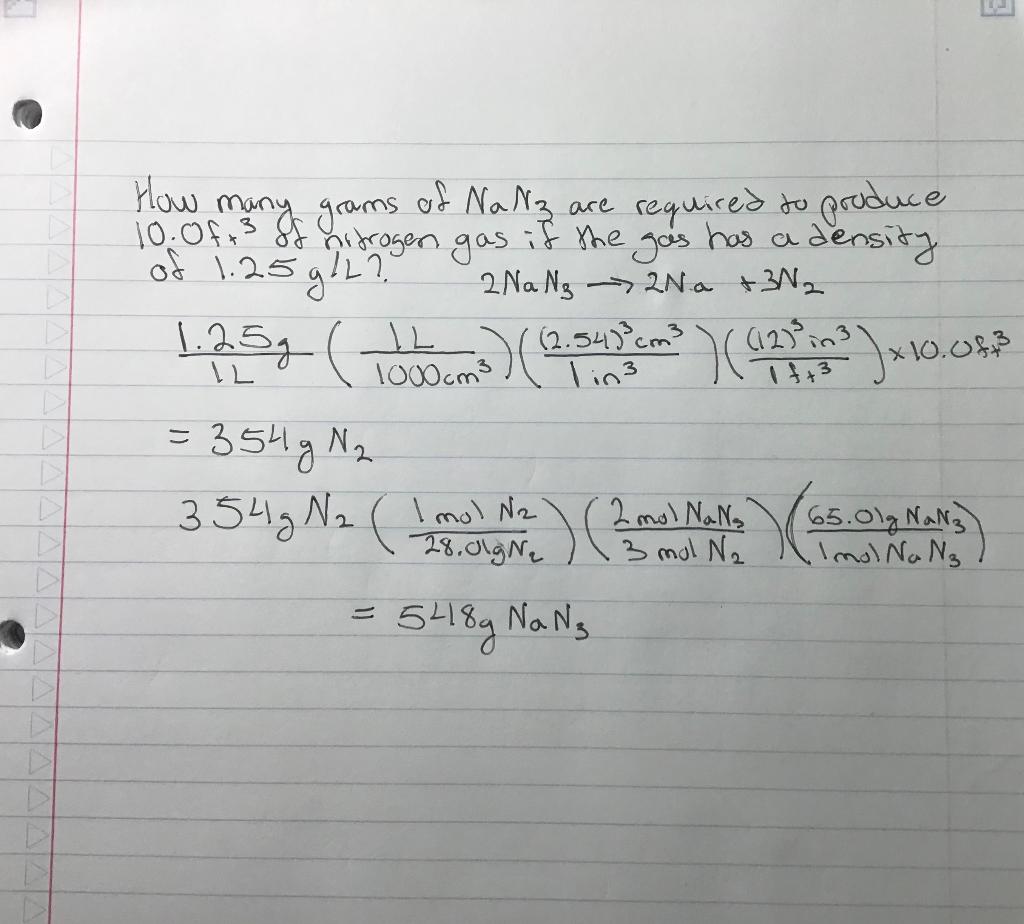 How many grams of NaN₃ are required to produce
10.0ft³ of nitrogen gas if the gas has a density
of 1.25 g/L? 2NaN₃ → 2Na + 3N₂
1.25g/1L (1L/1000cm³)((2.54)³cm³/1in³)((12)³in³/1ft³) x 10.0ft³
= 354g N₂
354g N₂ (1 mol N₂/28.01gN₂)(2 mol NaN₃/3 mol N₂)(65.01g NaN₃/1mol NaN₃)
= 548g NaN₃